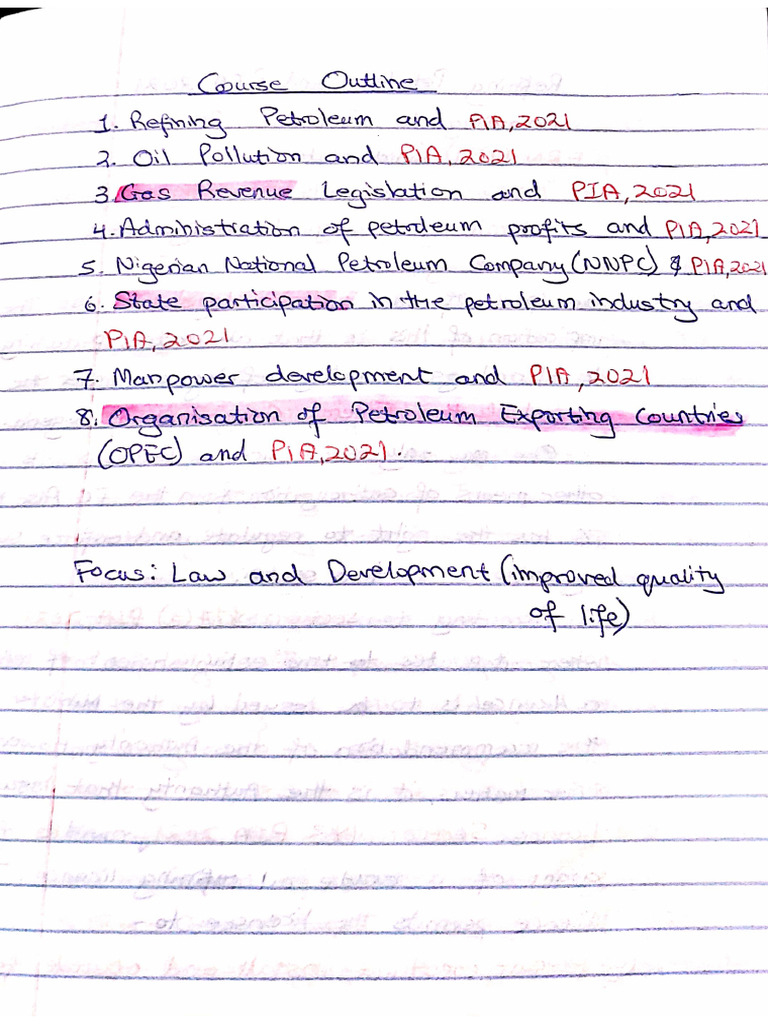 Course Outline
1. Refining Petroleum and PIA, 2021
2. Oil Pollution and PIA, 2021
3. Gas Revenue Legislation and PIA, 2021
4. Administration of petroleum profits and PIA, 2021
5. Nigerian National Petroleum Company (NNPC) & PIA, 2021
6. State participation in the petroleum industry and
PIA, 2021
7. Manpower development and PIA, 2021
8. Organisation of Petroleum Exporting Countries
(OPEC) and PIA, 2021.
Focus: Law and Development (improved quality
of life)